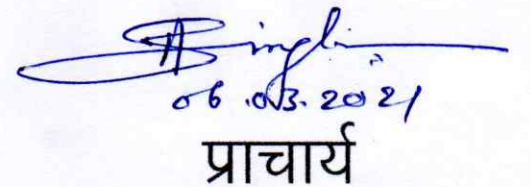 06.03.2021
प्राचार्य